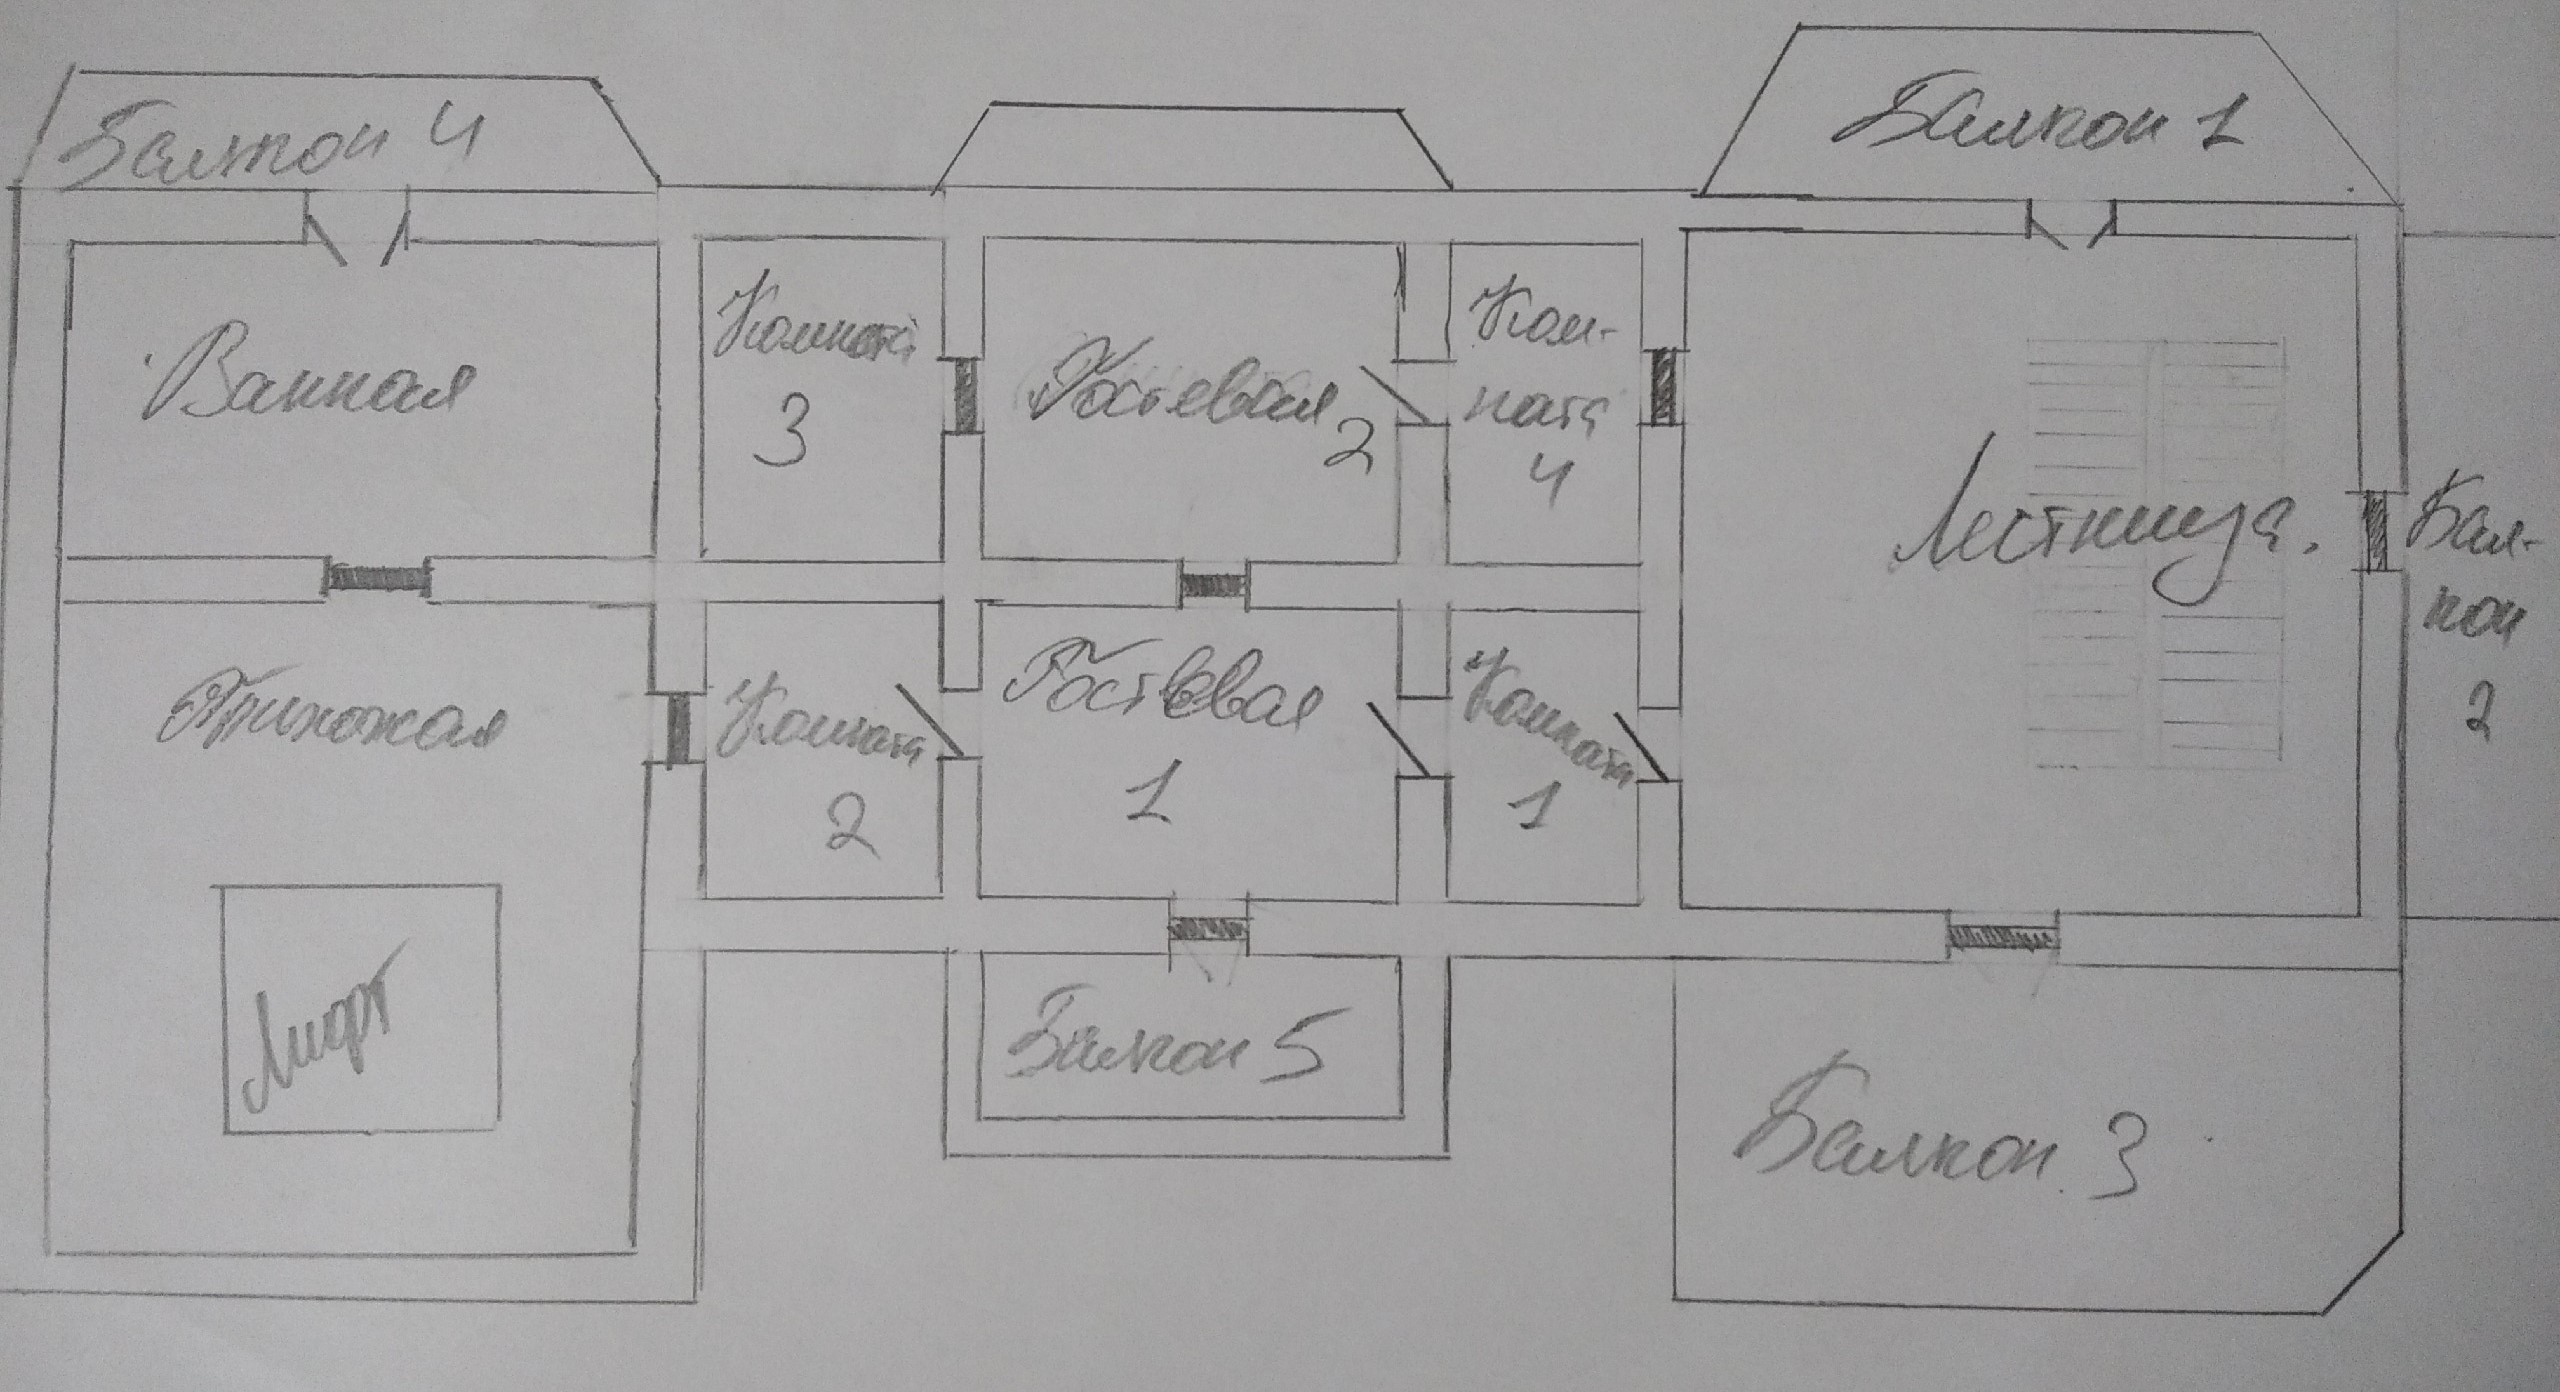 Балкон 4
Балкон 1
Ванная
Комната
3
Гостевая
2
Ком-
ната
4
Лестница.
Бал-
кон
2
Прихожая
Комната
2
Гостевая
1
Комната
1
Лифт
Балкон 5
Балкон 3